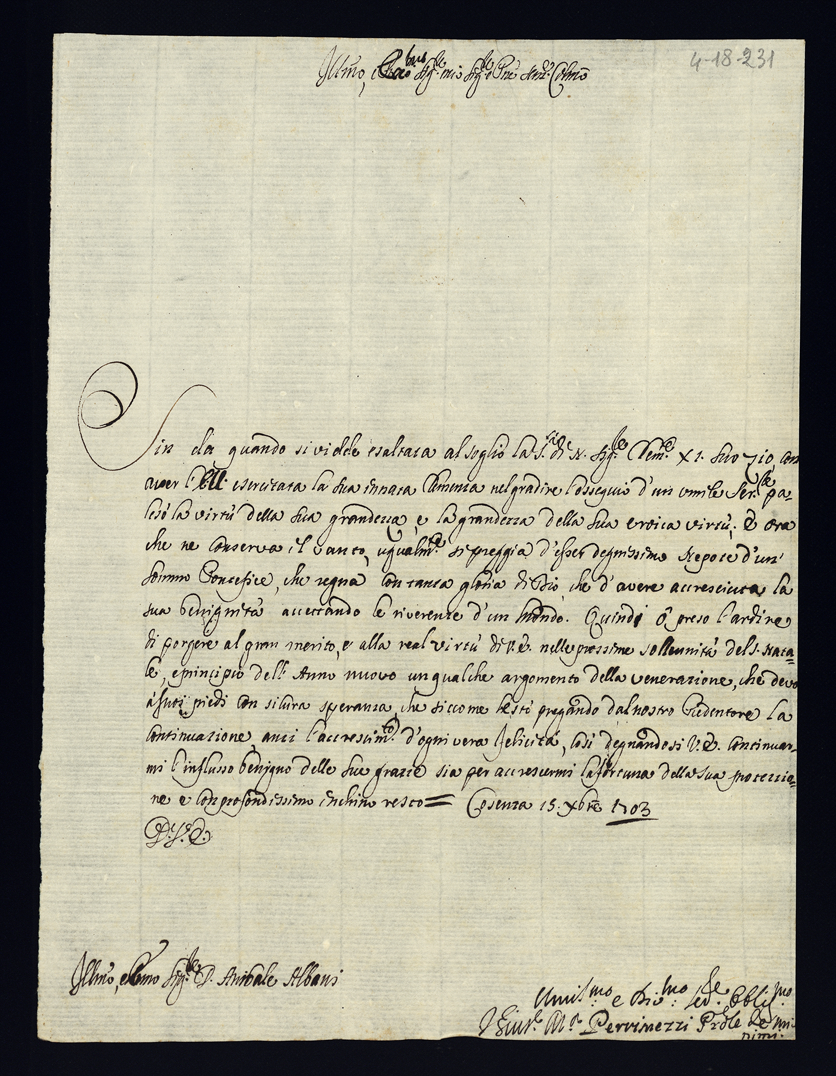 4-18-231
Illmo, e Sig.re mio Sig.re e Pne Colmo
Sin da quando si vidde esaltata al soglio la S.tà di N. Sig.re Clem.te XI. suo zio, con
aver l'E.V. esercitata la sua innata Clemenza nel gradire l'ossequio d'un umile Ser.re pa-
lesò la virtù della sua grandezza, e la grandezza della sua eroica virtù; E ora
che ne conserva il vanto, ugualm.te si preggia d'esser degnissimo Nepote d'un
sommo Pontefice, che regna con tanta gloria di Dio, che d'avere accresciuta la
sua benignità accettando le riverenze d'un Mondo. Quindi ò preso l'ardire
di porgere al gran merito, e alla real virtù di V.E. nelle prossime sollennità del S. Nata-
le, e principio dell' Anno nuovo un qualche argomento della venerazione, che devo
a suoi piedi con sicura speranza, che siccome resto pregando dal nostro Redentore la
continuazione anzi l'accrescim.to d'ogni vera felicità, così degnandosi V.E. continuar-
mi l'influsso benigno delle sue grazie sia per accrescermi la fortuna della sua protezzio-
ne e con profondissimo inchino resto = Cosenza 15. Xbre 1703
Illmo, e Sig.re D. Anibale Albani
Umil.mo e Div.mo Se.re Oblig.mo
Pervimezzi Prõle de Mi-
nimi.